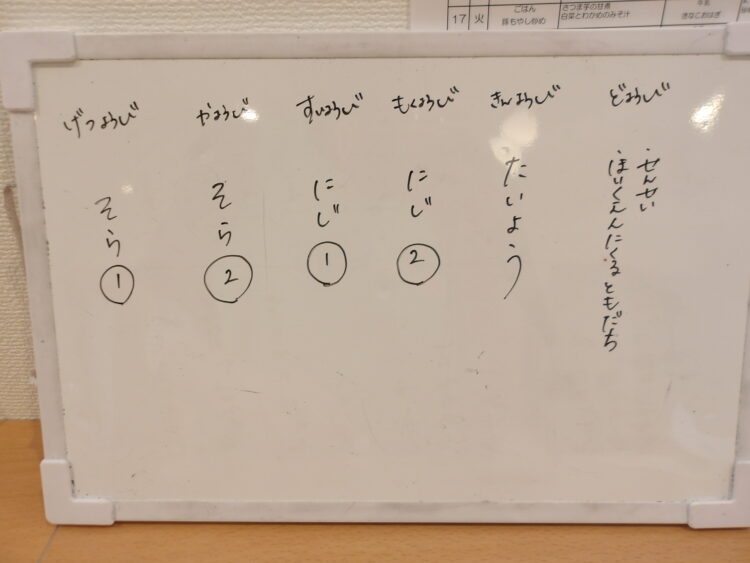 17 火 ごはん さつま芋の甘煮 牛乳
豚もやし炒め 白菜とわかめのみそ汁 きなこおはぎ
げつようび
そら
①
かようび
そら
②
すいようび
にじ
①
もくようび
にじ
②
きんようび
たいよう
どようび
・せんせい
・ほいくえんにくるともだち